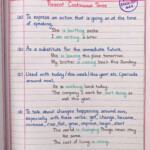 Present Continuous Tense
(1) To express an action that is going on at the time
of speaking.
She is knitting
I am writing a letter.
(2) As a substitute for the immediate future.
She is leaving this place tomorrow.
My brother is coming back this Sunday.
(3) Used with today/this week/this year etc. (periods
around now).
He is working hard today.
The company I work for isn't doing so
well this year.
(4) To talk about changes happening around now,
especially with these verbs: get, change, become,
increase, rise, fall, grow, improve, begin, start
The world is changing. Things never stay
the same.
The cost of living is rising.